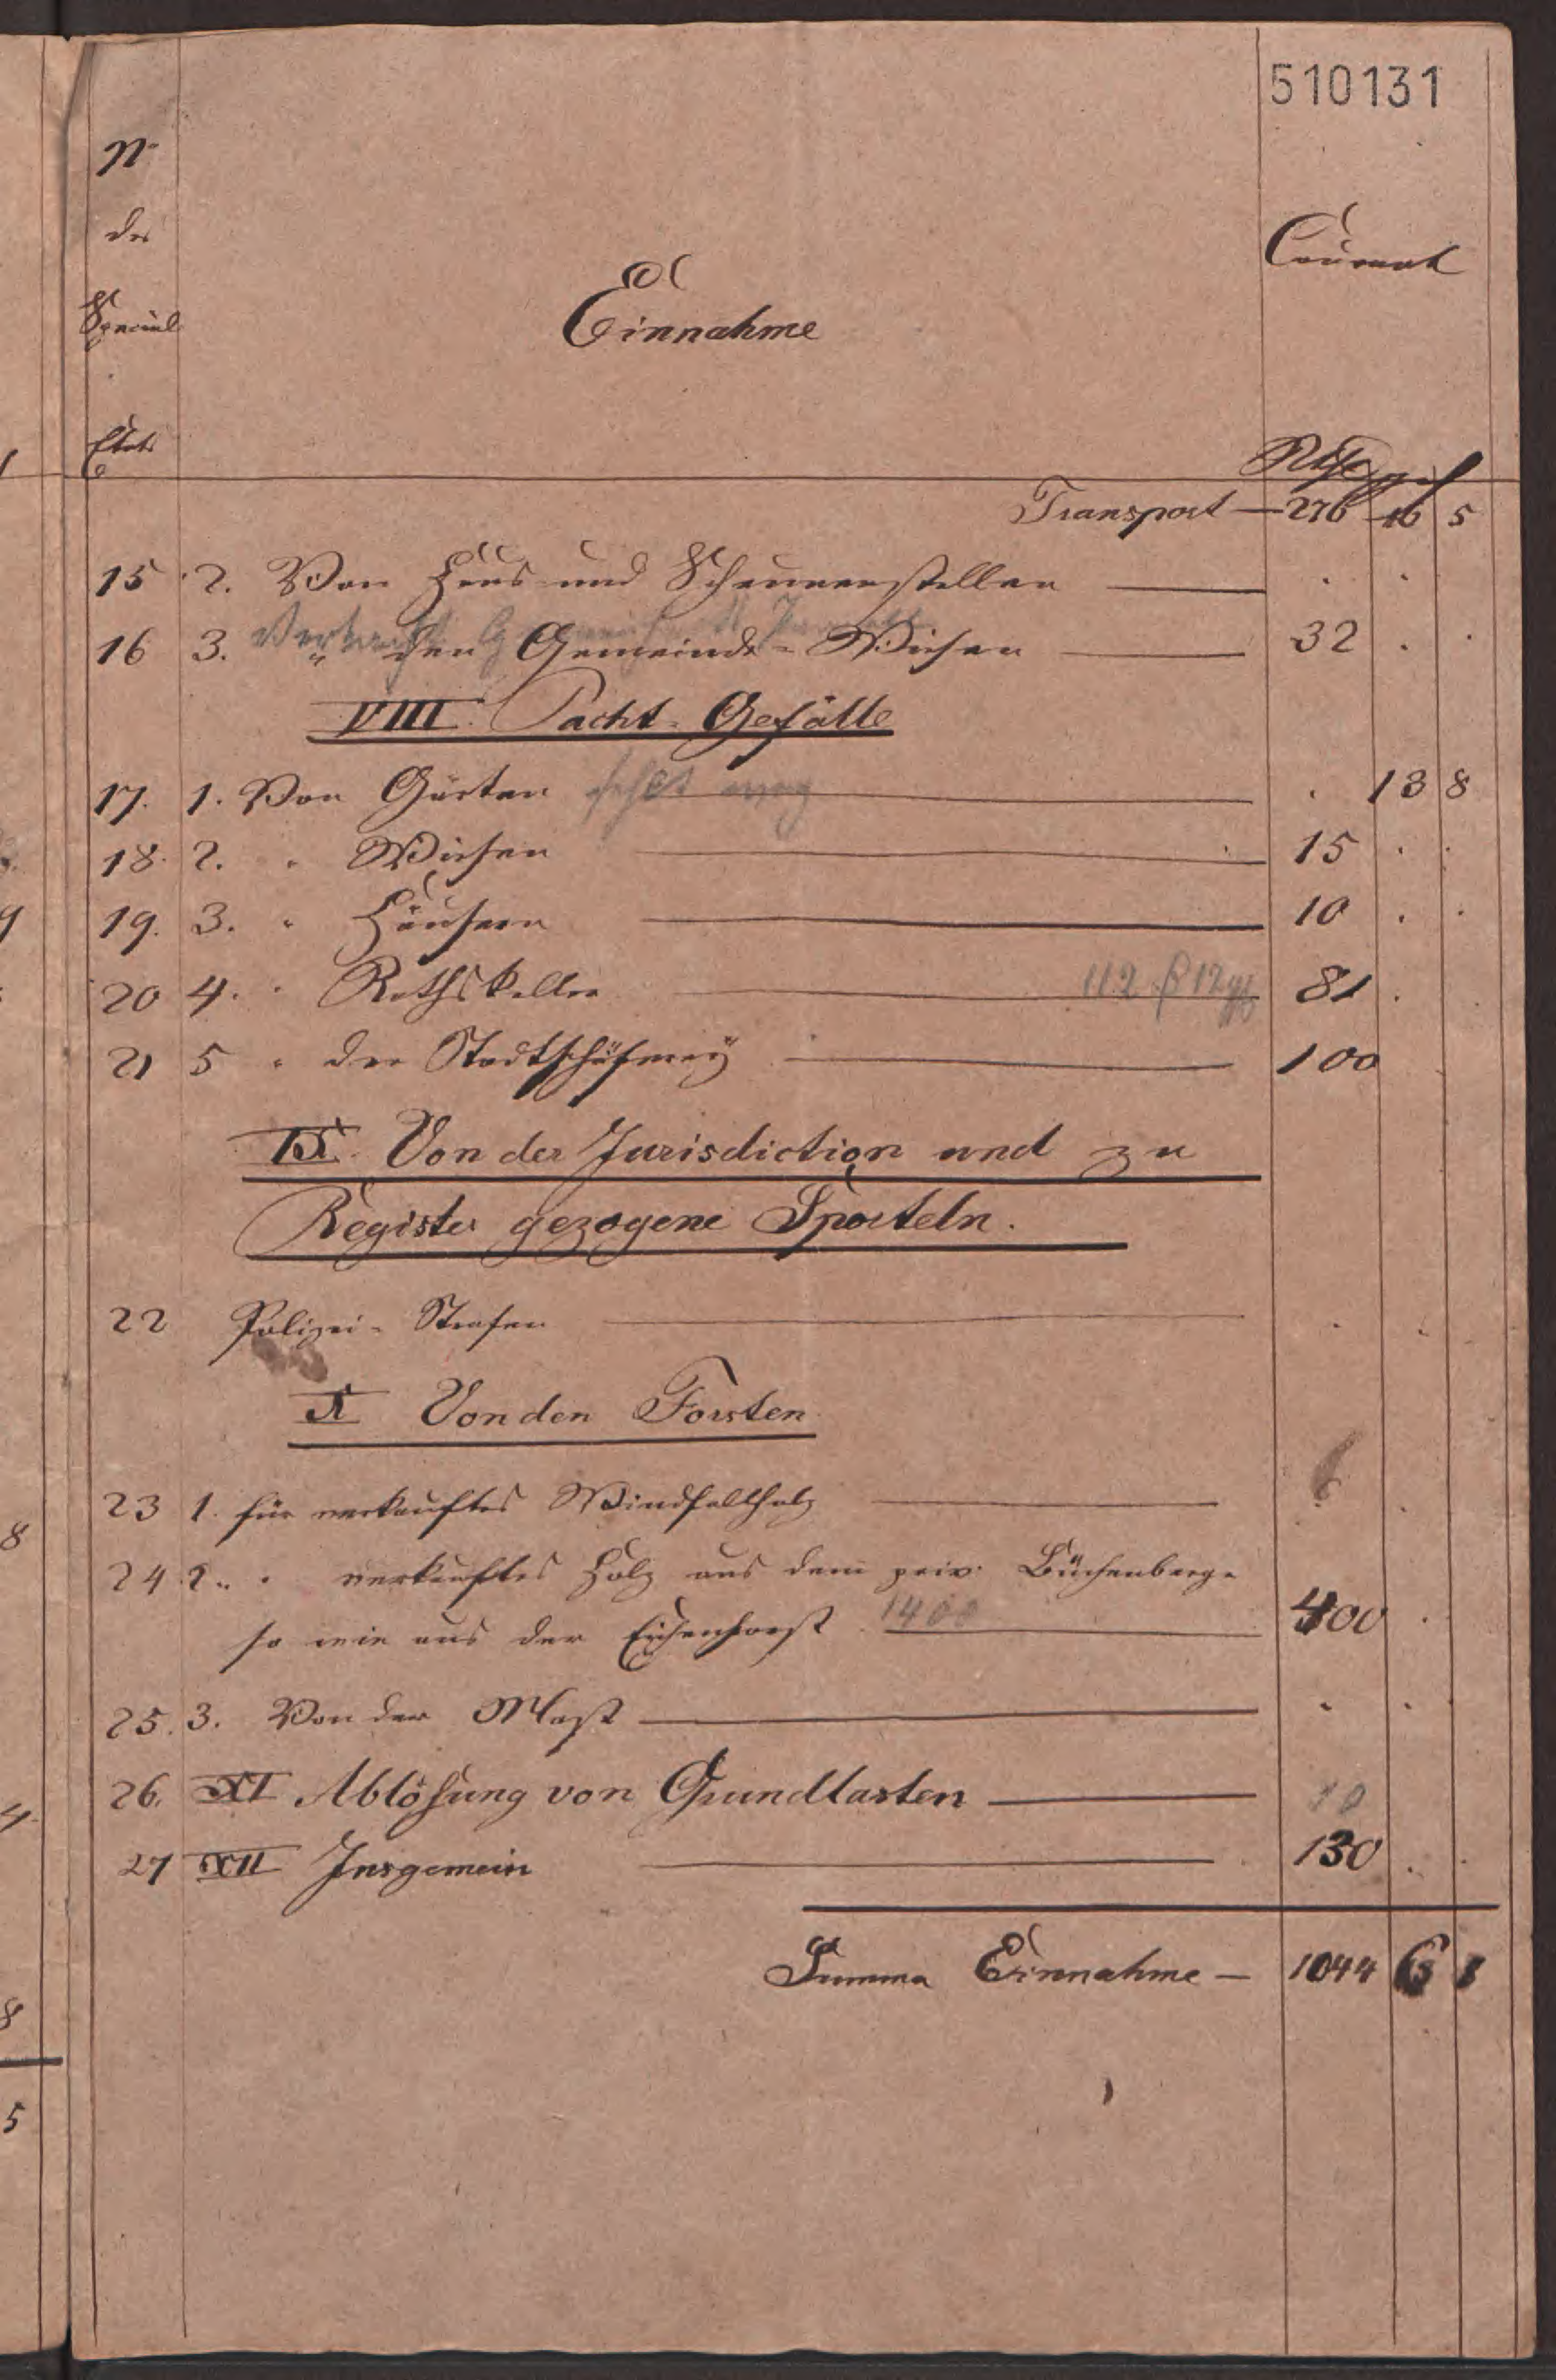 510131
No
des
Special
Etats
Einnahme
Courant
Rthlr gr
Transport — 276 16 5
15 2. Von Haus und Scheunenstellen — . .
16 3. " den Gemeinde-Wiesen — 32 . .
VIII. Pacht-Gefälle
17. 1. Von Gärten fehlt — . 13 8
18. 2. " Wiesen — 15 . .
19. 3. " Häusern — 10 . .
20 4. " Rathskeller — 112 12 81 .
21 5 " der Stadtschäferey — 100
IX. Von der Jurisdiction und zu
Register gezogene Sporteln.
22 Polizei-Strafen — . .
X Von den Forsten
23 1. für verkauftes Windfallholz — .
24 2. " verkauftes Holz aus dem priv. Büchenberge
so wie aus der Eichenforst 1400 — 400 .
25. 3. Von der Mast — . .
26. XI Ablösung von Grundlasten — 10
27 XII Insgemein — 130 . .
Summa Einnahme — 1044 6
8
4
8
5